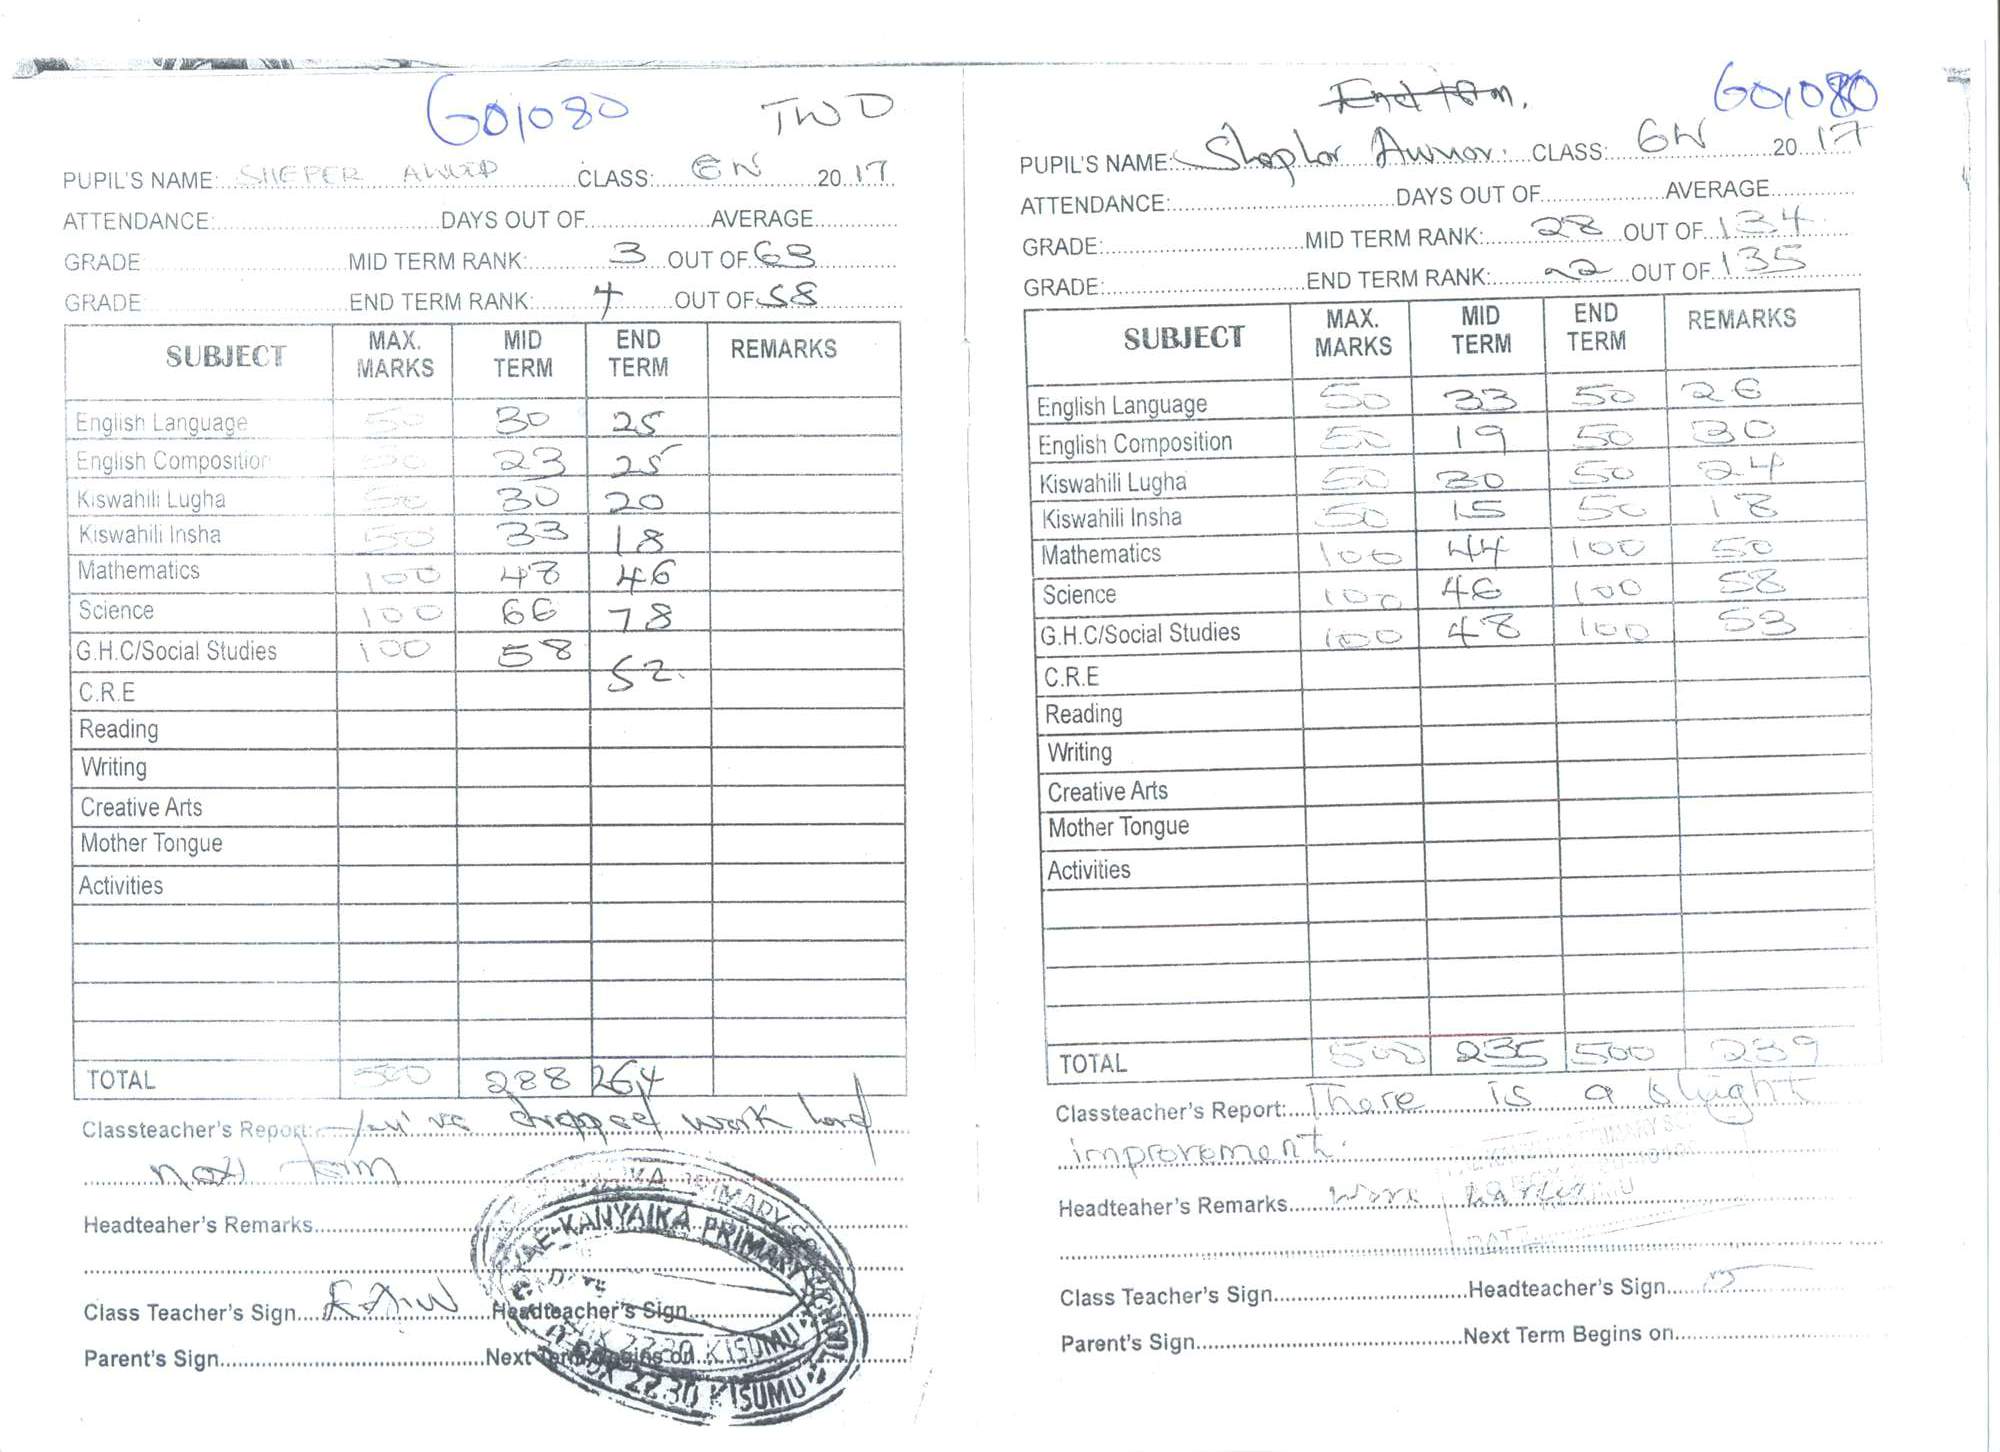 G01080 TWO
PUPIL'S NAME: SHEPER AWUOR CLASS: 6N 2017
ATTENDANCE: DAYS OUT OF AVERAGE
GRADE MID TERM RANK: 3 OUT OF 63
GRADE END TERM RANK: 4 OUT OF 58
SUBJECT MAX. MARKS MID TERM END TERM REMARKS
English Language 50 30 25
English Composition 50 23 25
Kiswahili Lugha 50 30 20
Kiswahili Insha 50 33 18
Mathematics 100 48 46
Science 100 66 78
G.H.C/Social Studies 100 58 52.
C.R.E
Reading
Writing
Creative Arts
Mother Tongue
Activities
TOTAL 500 288 264
Classteacher's Report: You've dropped work hard
next term
Headteaher's Remarks
Class Teacher's Sign Headteacher's Sign
Parent's Sign Next Term Begins on
KANYAIKA PRIMARY SCHOOL
DATE
BOX 2230 KISUMU
End term. G01080
PUPIL'S NAME: Awuor. CLASS: 6N 2017
ATTENDANCE: DAYS OUT OF AVERAGE
GRADE: MID TERM RANK: 28 OUT OF 134
GRADE: END TERM RANK: 22 OUT OF 135
SUBJECT MAX. MARKS MID TERM END TERM REMARKS
English Language 50 33 50 26
English Composition 50 19 50 30
Kiswahili Lugha 50 30 50 24
Kiswahili Insha 50 15 50 18
Mathematics 100 44 100 50
Science 100 46 100 58
G.H.C/Social Studies 100 48 100 53
C.R.E
Reading
Writing
Creative Arts
Mother Tongue
Activities
TOTAL 500 235 500 239
Classteacher's Report: There is a slight
improvement.
Headteaher's Remarks work harder
Class Teacher's Sign Headteacher's Sign
Parent's Sign Next Term Begins on